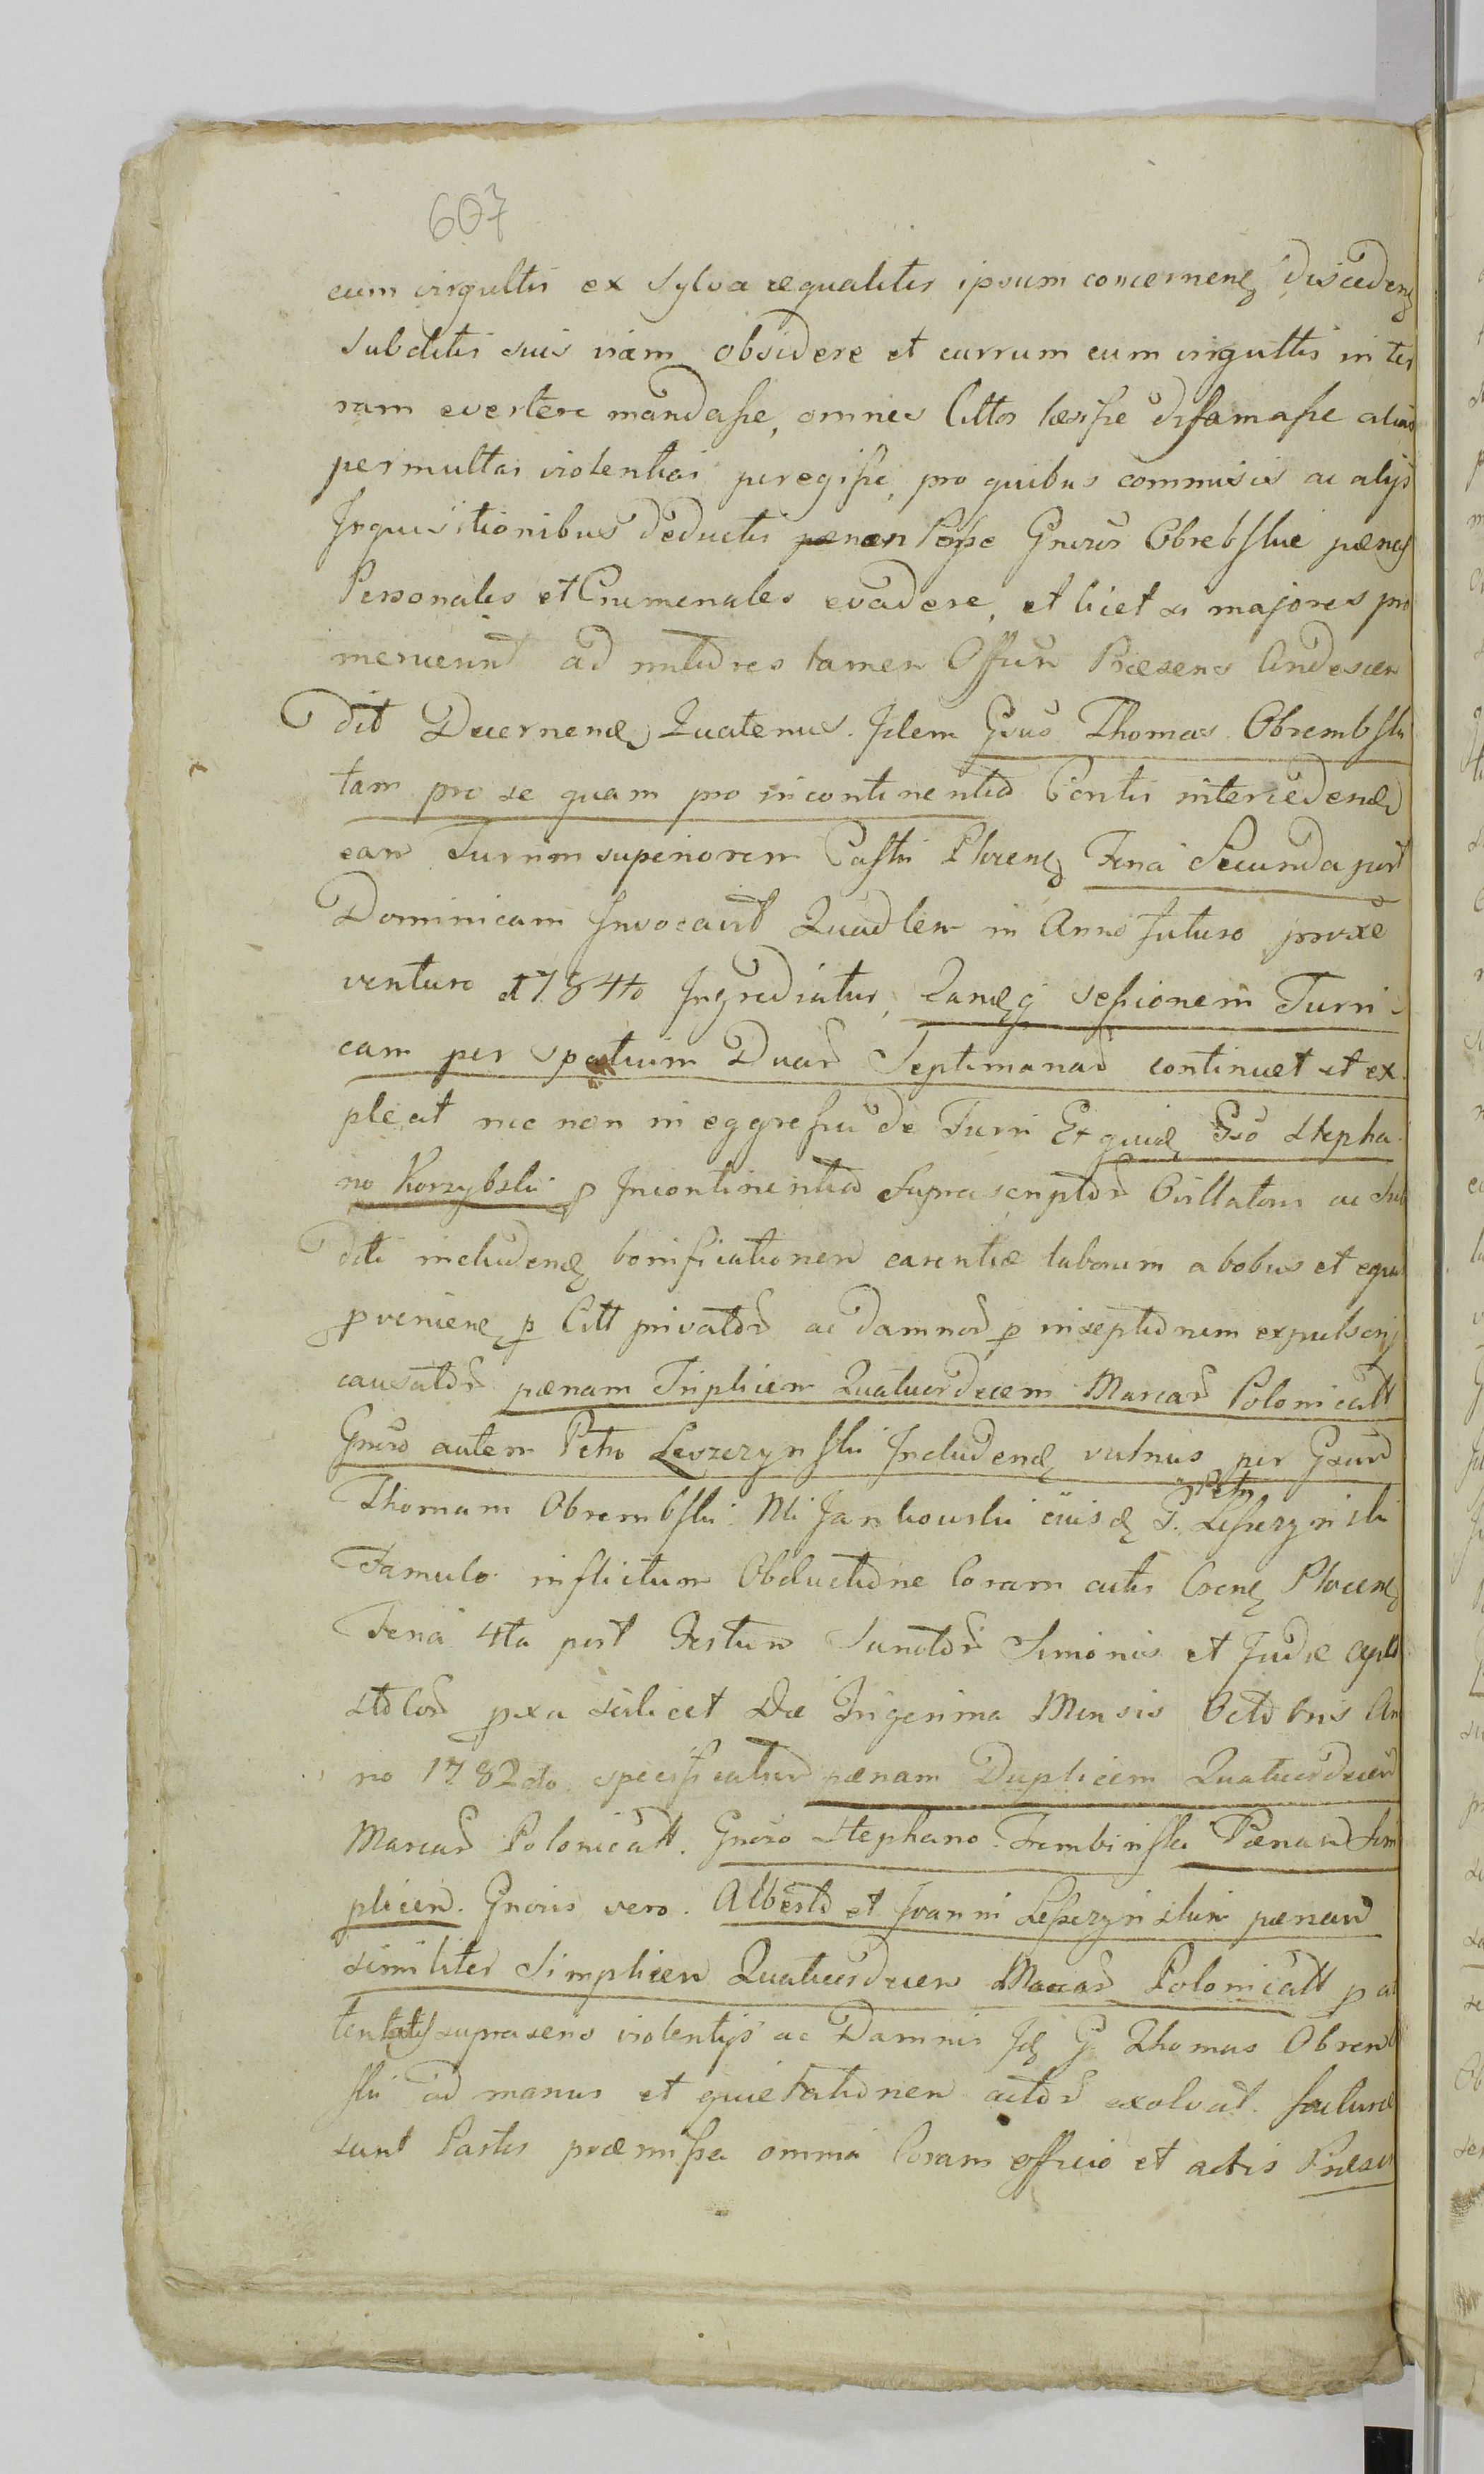 607
cum virgultis ex sylva æqualiter ipsum concernen discedens
subditis suis viam obsidere et currum cum virgultis in ter
ram evertere mandaſse, omnes Cittos læsiſse difamaſse alias
permultas violentias peregiſse, pro quibus commisis ac alijs
Inquisitionibus deductis non Poſse Gnrosus Obrebski pænas
Personales et Criminales evadere, et licet is majores pro
meruerunt ad mitiores tamen Offum Præsens Condescen
dit Decernend Quatenus Idem Gsus Thomas Obrembski
tam pro se quam pro incontinentia Contis interceden
eam Turrim superiorem Castri Plocens Feria Secunda post
Dominicam Invocavit Quadlem in Anno futuro proxe
venturo 1784to Ingrediatur, Eandq seſsionem Turri
cam per spatium Duar Septimanar continuet et ex
pleat nec non in eggreſsu de Turri Ex quid Gso Stepha
no Korzybski p Incontinentia suprascriptor Civillatoris ac Sub
diti includend bonificationem carentiæ laborum a bobus et equis
pvenien p Citt privator ac damnor p inseptionem expulsionj
causator pænam Triplicem Quatuordecem Marcar Polonicatt
Gnroso autem Petro Leszczynski Includend vulnus per Gsum
Thomam Obrembski Nli Jankowski ejusd G. Petri Leszczynski
Famulo inflictum Obductione Coram actis Crens Plocens
Feria 4ta post Festum Sanctor Simonis et Judæ Apo
stolor pxa scilicet Die Trigesima Mensis Octobris An
no 1782do specificatum pænam Duplicem Quatuordecem
Marcar Polonicatt. Gnroso Stephano Trembinski Pænam Sim
plicem. Gnrosis vero. Alberto et Joanni Leszczynskim pænam
similiter Simplicem Quatuordecem Marcar Polonicatt p at
tentatis supraseris violentijs ac Damnis Id G. Thomas Obremb
ski ad manus et quietationem actor exolvat. facturæ
sunt Partes præmiſsa omnia Coram officio et actis Præsen